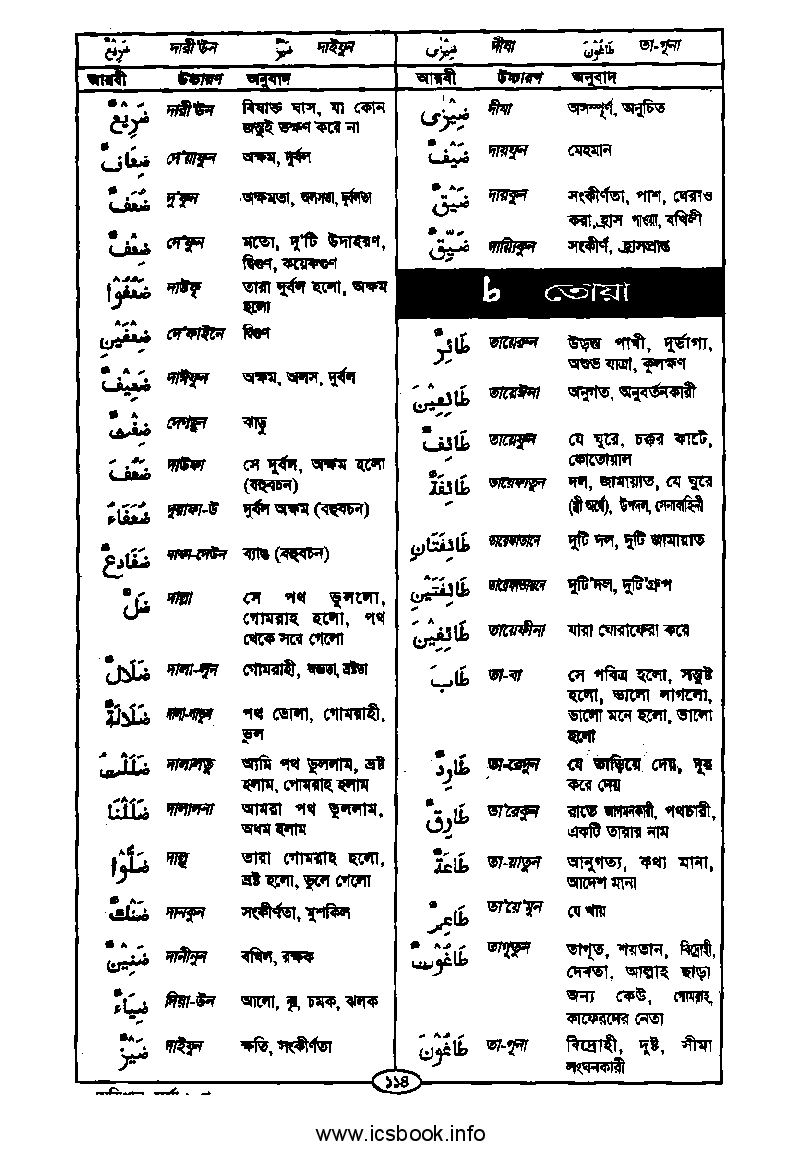 ضَرِيْعٌ দারী'উন ضَيْزٌ দাইযুন
আরবী উচ্চারণ অনুবাদ
ضَرِيْعٌ দারী'উন বিষাক্ত ঘাস, যা কোন
জন্তুই ভক্ষণ করে না
ضِعَافٌ দে'য়াফুন অক্ষম, দুর্বল
ضُعْفٌ দু'ফুন অক্ষমতা, অলসতা, দুর্বলতা
ضِعْفٌ দে'ফুন মতো, দু'টি উদাহরণ,
দ্বিগুণ, কয়েকগুণ
ضَعُفُوْا দাউফূ তারা দুর্বল হলো, অক্ষম
হলো
ضِعْفَيْنِ দে'ফাইনে দ্বিগুণ
ضَعِيْفٌ দাঈফুন অক্ষম, অলস, দুর্বল
ضِغْثٌ দেগছুন ঝাড়ু
ضَعُفَ দাউফা সে দুর্বল, অক্ষম হলো
(বহুবচন)
ضُعَفَاءُ দুয়াফা-উ দুর্বল অক্ষম (বহুবচন)
ضَفَادِعُ দাফা-দেউন ব্যাঙ (বহুবচন)
ضَلَّ দাল্লা সে পথ ভুললো,
গোমরাহ হলো, পথ
থেকে সরে গেলো
ضَلَالٌ দালা-লুন গোমরাহী, ভ্রষ্টতা
ضَلَالَةٌ দালা-লাতুন পথ ভোলা, গোমরাহী,
ভুল
ضَلَلْتُ দালালতু আমি পথ ভুললাম, ভ্রষ্ট
হলাম, গোমরাহ হলাম
ضَلَلْنَا দালালনা আমরা পথ ভুললাম,
অধম হলাম
ضَلُّوْا দাল্লূ তারা গোমরাহ হলো,
ভ্রষ্ট হলো, ভুলে গেলো
ضَنْكٌ দানকুন সংকীর্ণতা, মুশকিল
ضَنِيْنٌ দানীনুন বখিল, রক্ষক
ضِيَاءٌ দিয়া-উন আলো, নূর, চমক, ঝলক
ضَيْزٌ দাইযুন ক্ষতি, সংকীর্ণতা
ضِيْزٰى দীযা طَاغُوْنَ তা-গূনা
আরবী উচ্চারণ অনুবাদ
ضِيْزٰى দীযা অসম্পূর্ণ, অনুচিত
ضَيْفٌ দায়ফুন মেহমান
ضَيْقٌ দায়কুন সংকীর্ণতা, পাশ, ঘেরাও
করা, হ্রাস পাওয়া, বখিলী
ضَيِّقٌ দায়্যিকুন সংকীর্ণ, হ্রাসপ্রাপ্ত
ط তোয়া
طَائِرٌ তায়েরুন উড়ন্ত পাখী, দুর্ভাগা,
অশুভ যাত্রা, কুলক্ষণ
طَائِعِيْنَ তায়েঈনা অনুগত, অনুবর্তনকারী
طَائِفٌ তায়েফুন যে ঘুরে, চক্কর কাটে,
কোতোয়াল
طَائِفَةٌ তায়েফাতুন দল, জামায়াত, যে ঘুরে
(স্ত্রী অর্থে), উপদল, সেনাবাহিনী
طَائِفَتَانِ তায়েফাতানে দুটি দল, দুটি জামায়াত
طَائِفَتَيْنِ তায়েফাতায়নে দুটি দল, দুটি গ্রুপ
طَائِفِيْنَ তায়েফীনা যারা ঘোরাফেরা করে
طَابَ তা-বা সে পবিত্র হলো, সন্তুষ্ট
হলো, ভালো লাগলো,
ভালো মনে হলো, ভালো
হলো
طَارِدٌ তা-রেদুন যে তাড়িয়ে দেয়, দূর
করে দেয়
طَارِقٌ তা'রেকুন রাতে আগমনকারী, পথচারী,
একটি তারার নাম
طَاعَةٌ তা-য়াতুন আনুগত্য, কথা মানা,
আদেশ মানা
طَاعِمٌ তা'য়ে'মুন যে খায়
طَاغُوْتٌ তাগূতুন তাগূত, শয়তান, বিদ্রোহী,
দেবতা, আল্লাহ ছাড়া
অন্য কেউ, গোমরাহ,
কাফেরদের নেতা
طَاغُوْنَ তা-গূনা বিদ্রোহী, দুষ্ট, সীমা
লংঘনকারী
১১৪
www.icsbook.info